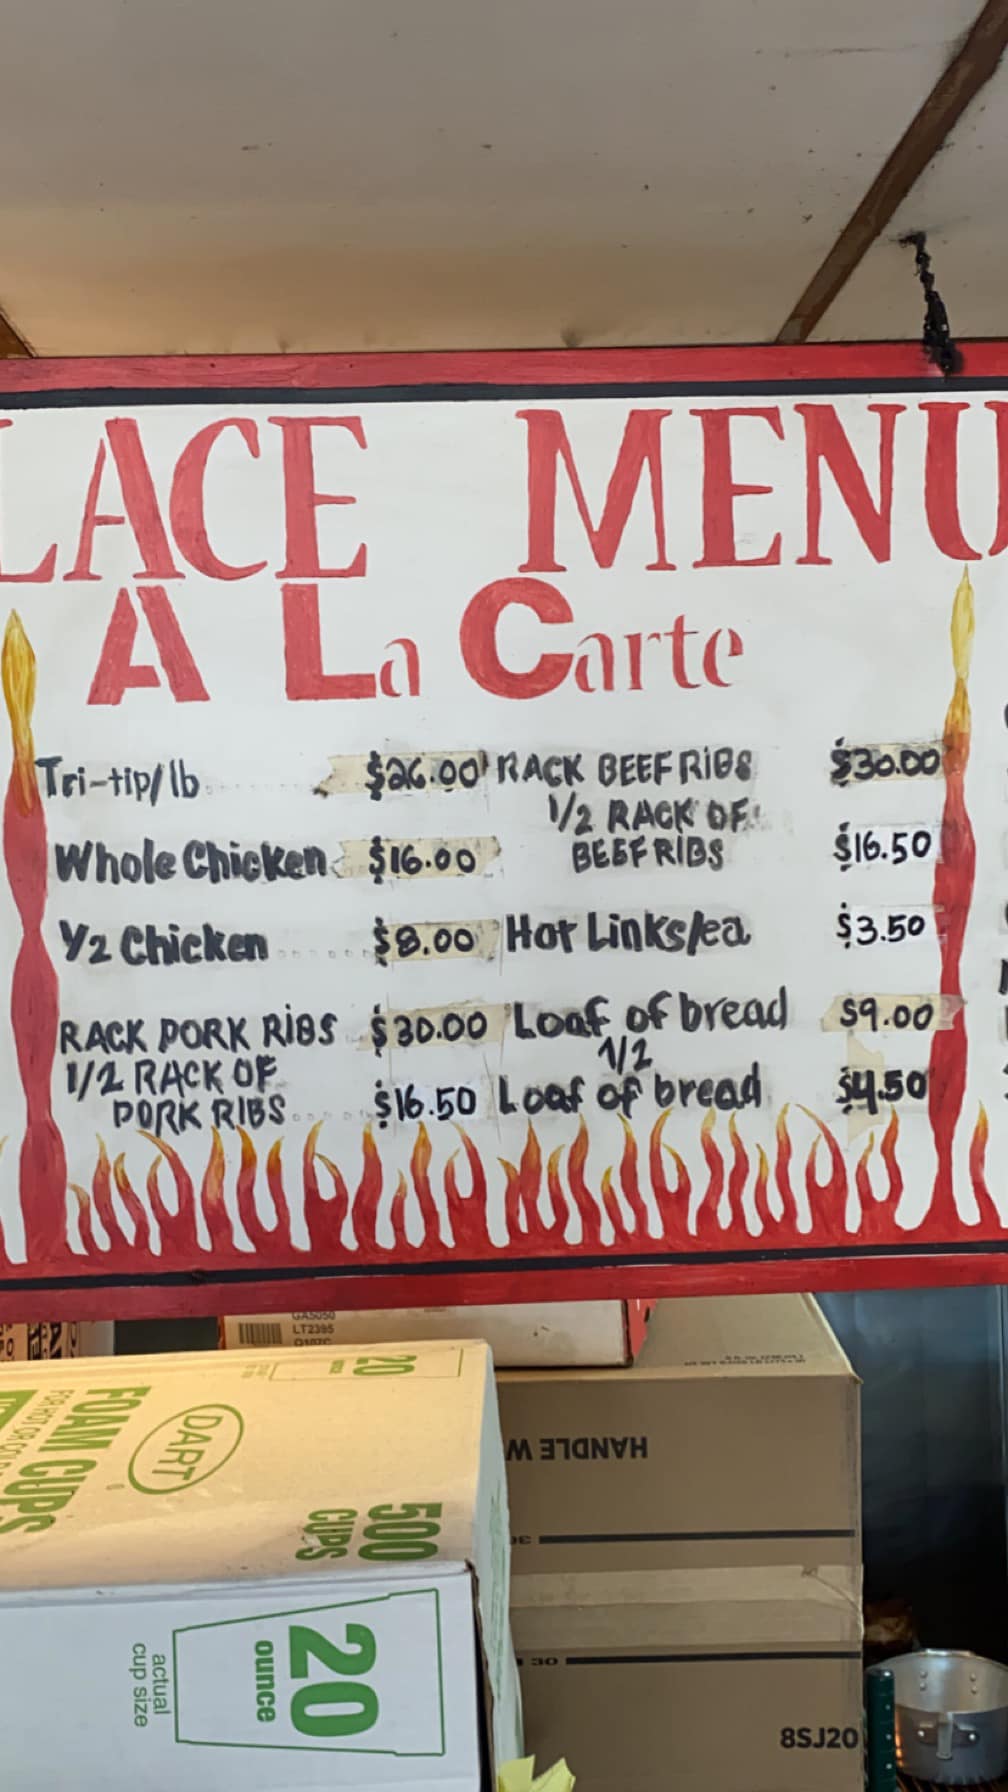 LACE MENU
A La Carte
Tri-tip/lb $26.00
Whole Chicken $16.00
1/2 Chicken $8.00
RACK PORK RiBS $30.00
1/2 RACK OF
PORK RIBS $16.50
RACK BEEF RiBS $30.00
1/2 RACK OF
BEEF RIBS $16.50
Hot Links/ea $3.50
Loaf of bread $9.00
1/2
Loaf of bread $4.50
LT2395
20
DART
FOAM CUPS
500
CUPS
20
ounce
actual
cup size
HANDLE W
30
8SJ20